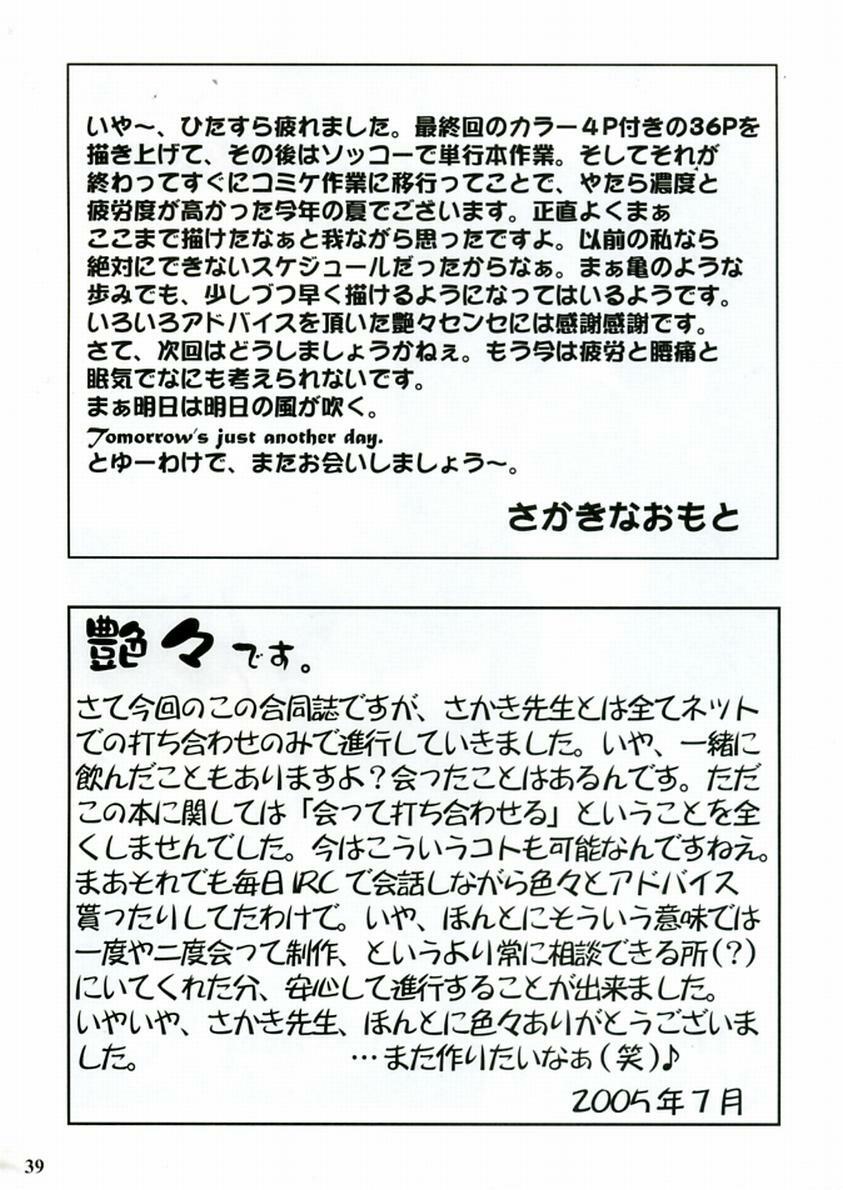 いや〜、ひたすら疲れました。最終回のカラー４P付きの36Pを
描き上げて、その後はソッコーで単行本作業。そしてそれが
終わってすぐにコミケ作業に移行ってことで、やたら濃度と
疲労度が高かった今年の夏でございます。正直よくまぁ
ここまで描けたなぁと我ながら思ったですよ。以前の私なら
絶対にできないスケジュールだったからなぁ。まぁ亀のような
歩みでも、少しづつ早く描けるようになってはいるようです。
いろいろアドバイスを頂いた艶々センセには感謝感謝です。
さて、次回はどうしましょうかねぇ。もう今は疲労と腰痛と
眠気でなにも考えられないです。
まぁ明日は明日の風が吹く。
Tomorrow's just another day.
とゆーわけで、またお会いしましょう〜。
さかきなおもと
艶々です。
さて今回のこの合同誌ですが、さかき先生とは全てネット
での打ち合わせのみで進行していきました。いや、一緒に
飲んだこともありますよ？会ったことはあるんです。ただ
この本に関しては「会って打ち合わせる」ということを全
くしませんでした。今はこういうコトも可能なんですねえ。
まあそれでも毎日IRCで会話しながら色々とアドバイス
貰ったりしてたわけで。いや、ほんとにそういう意味では
一度や二度会って制作、というより常に相談できる所(？)
にいてくれた分、安心して進行することが出来ました。
いやいや、さかき先生、ほんとに色々ありがとうございま
した。 …また作りたいなぁ(笑)♪
2005年7月
39